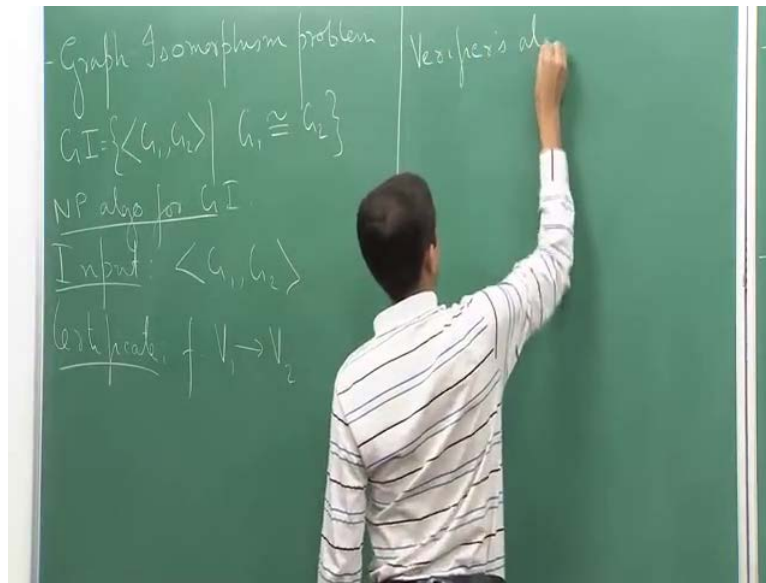 - Graph Isomorphism problem
GI = {<G₁, G₂> | G₁ ≅ G₂}
NP algo for GI.
Input: <G₁, G₂>
Certificate: f V₁ → V₂
Verifier's al